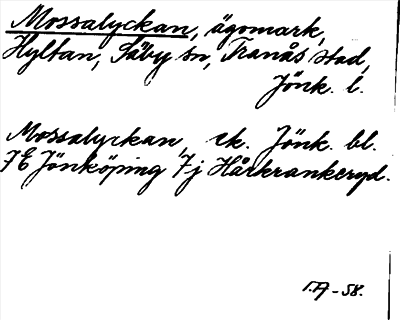 Mossalyckan, ägomark,
Hyltan, Säby sn, Tranås stad,
Jönk. l.
Mossalyckan, ek. Jönk. bl.
7E Jönköping 7j Hårkrankeryd.
-58.